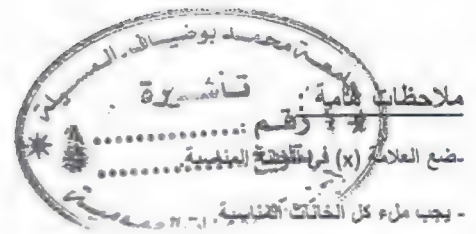 جامعة محمد بوضياف المسيلة
تأشيرة
ملاحظات هامة :
رقم : ..............
-ضع العلامة (x) في الخانة المناسبة.
- يجب ملء كل الخانات المناسبة.